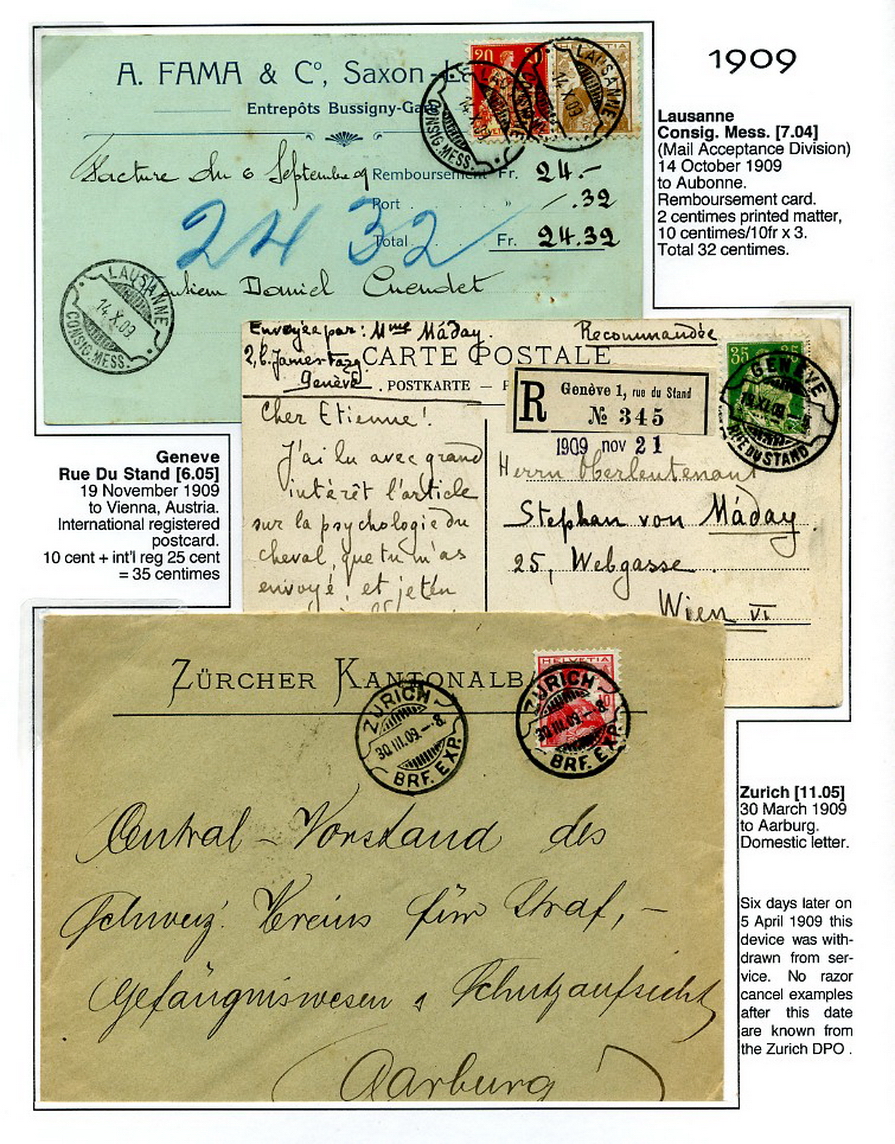 1909
A. FAMA & Cº, Saxon-
Entrepôts Bussigny-Gare
20 20
HELVETIA
LAUSANNE
14.X.09
CONSIG. MESS.
LAUSANNE
14.X.09
Facture du 6 Septembre 09 Remboursement Fr. 24.-
Port „ -.32
Total Fr. 24.32
24 32
Daniel Cuendet
LAUSANNE
14.X.09
CONSIG. MESS.
Lausanne
Consig. Mess. [7.04]
(Mail Acceptance Division)
14 October 1909
to Aubonne.
Remboursement card.
2 centimes printed matter,
10 centimes/10fr x 3.
Total 32 centimes.
Envoyée par: Mme Máday. Recommandée
Genève
CARTE POSTALE
. POSTKARTE - P
R Genève 1, rue du Stand
№ 345
1909 nov 21
35 35
GENÈVE
19.XI.09.
RUE DU STAND
Cher Etienne!
J'ai lu avec grand
intérêt l'article
sur la psychologie du
cheval, que tu m'as
envoyé, et je t'en
Herrn Oberleutenant
Stephan von Máday.
25, Webgasse.
Wien VI
Geneve
Rue Du Stand [6.05]
19 November 1909
to Vienna, Austria.
International registered
postcard.
10 cent + int'l reg 25 cent
= 35 centimes
ZÜRCHER KANTONALBA
HELVETIA
10
ZÜRICH
30.III.09.-8.
BRF. EXP.
ZÜRICH
30.III.09.-8.
BRF. EXP.
Central-Vorstand des
Schweiz. Vereins für Straf,-
Gefängniswesen & Schutzaufsicht
Aarburg
Zurich [11.05]
30 March 1909
to Aarburg.
Domestic letter.
Six days later on
5 April 1909 this
device was with-
drawn from ser-
vice. No razor
cancel examples
after this date
are known from
the Zurich DPO .